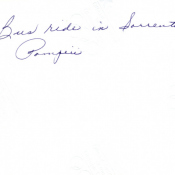 Bus ride in Sorrento
Pompeii